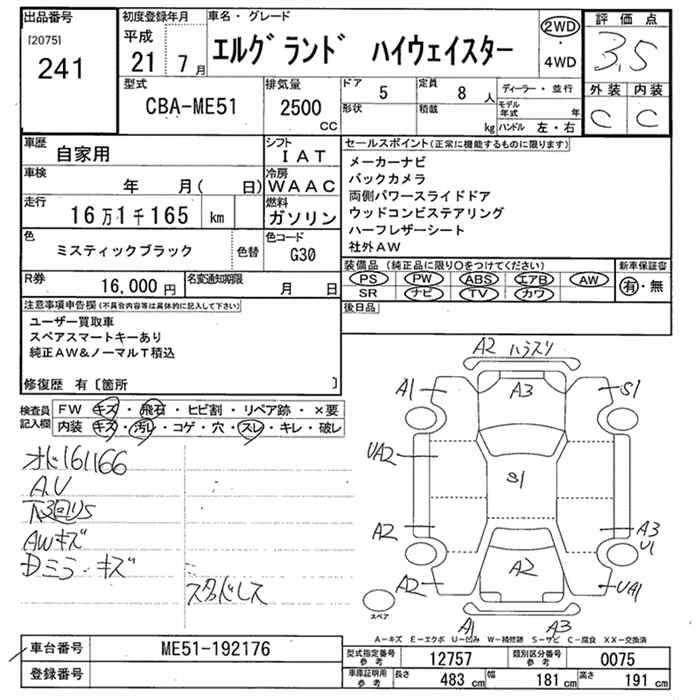 出品番号 [2075] 241
初度登録年月 平成 21年 7月
車名・グレード エルグランド ハイウェイスター
2WD・4WD
評価点 3,5
外装 C 内装 C
型式 CBA-ME51
排気量 2500 CC
ドア 5
形状
定員 8 人
積載 kg
ディーラー・並行
モデル年式 年
ハンドル 左・右
車歴 自家用
シフト IAT
車検 年 月( 日)
冷房 WAAC
走行 16万1千165 km
燃料 ガソリン
色 ミスティックブラック 色替
色コード G30
R券 16,000 円
名変通知期限 月 日
セールスポイント(正常に機能するものに限ります)
メーカーナビ
バックカメラ
両側パワースライドドア
ウッドコンビステアリング
ハーフレザーシート
社外AW
装備品 (純正品に限り○をつけてください)
PS PW ABS エアB AW
SR ナビ TV カワ
新車保証書 有・無
後日品
注意事項申告欄(不具合内容等は具体的に記入して下さい)
ユーザー買取車
スペアスマートキーあり
純正AW&ノーマルT積込
修復歴 有〔箇所 〕
検査員記入欄
FW キズ・飛石・ヒビ割・リペア跡・×要
内装 キズ・汚レ・コゲ・穴・スレ・キレ・破レ
オド161166
A.U
下3回り5
AWキズ
Dミラーキズ
スタドレス
A2 ハラスリ
A1 A3 S1
UA2 S1
A2 A3 U1
A2 A2 UA1
スペア
A1 A3
A-キズ E-エクボ U-凹み W-補修跡 S-サビ C-腐食 XX-交換済
車台番号 ME51-192176
登録番号
型式指定番号 参考 12757
類別区分番号 参考 0075
車庫証明用 参考 長さ 483 cm 幅 181 cm 高さ 191 cm